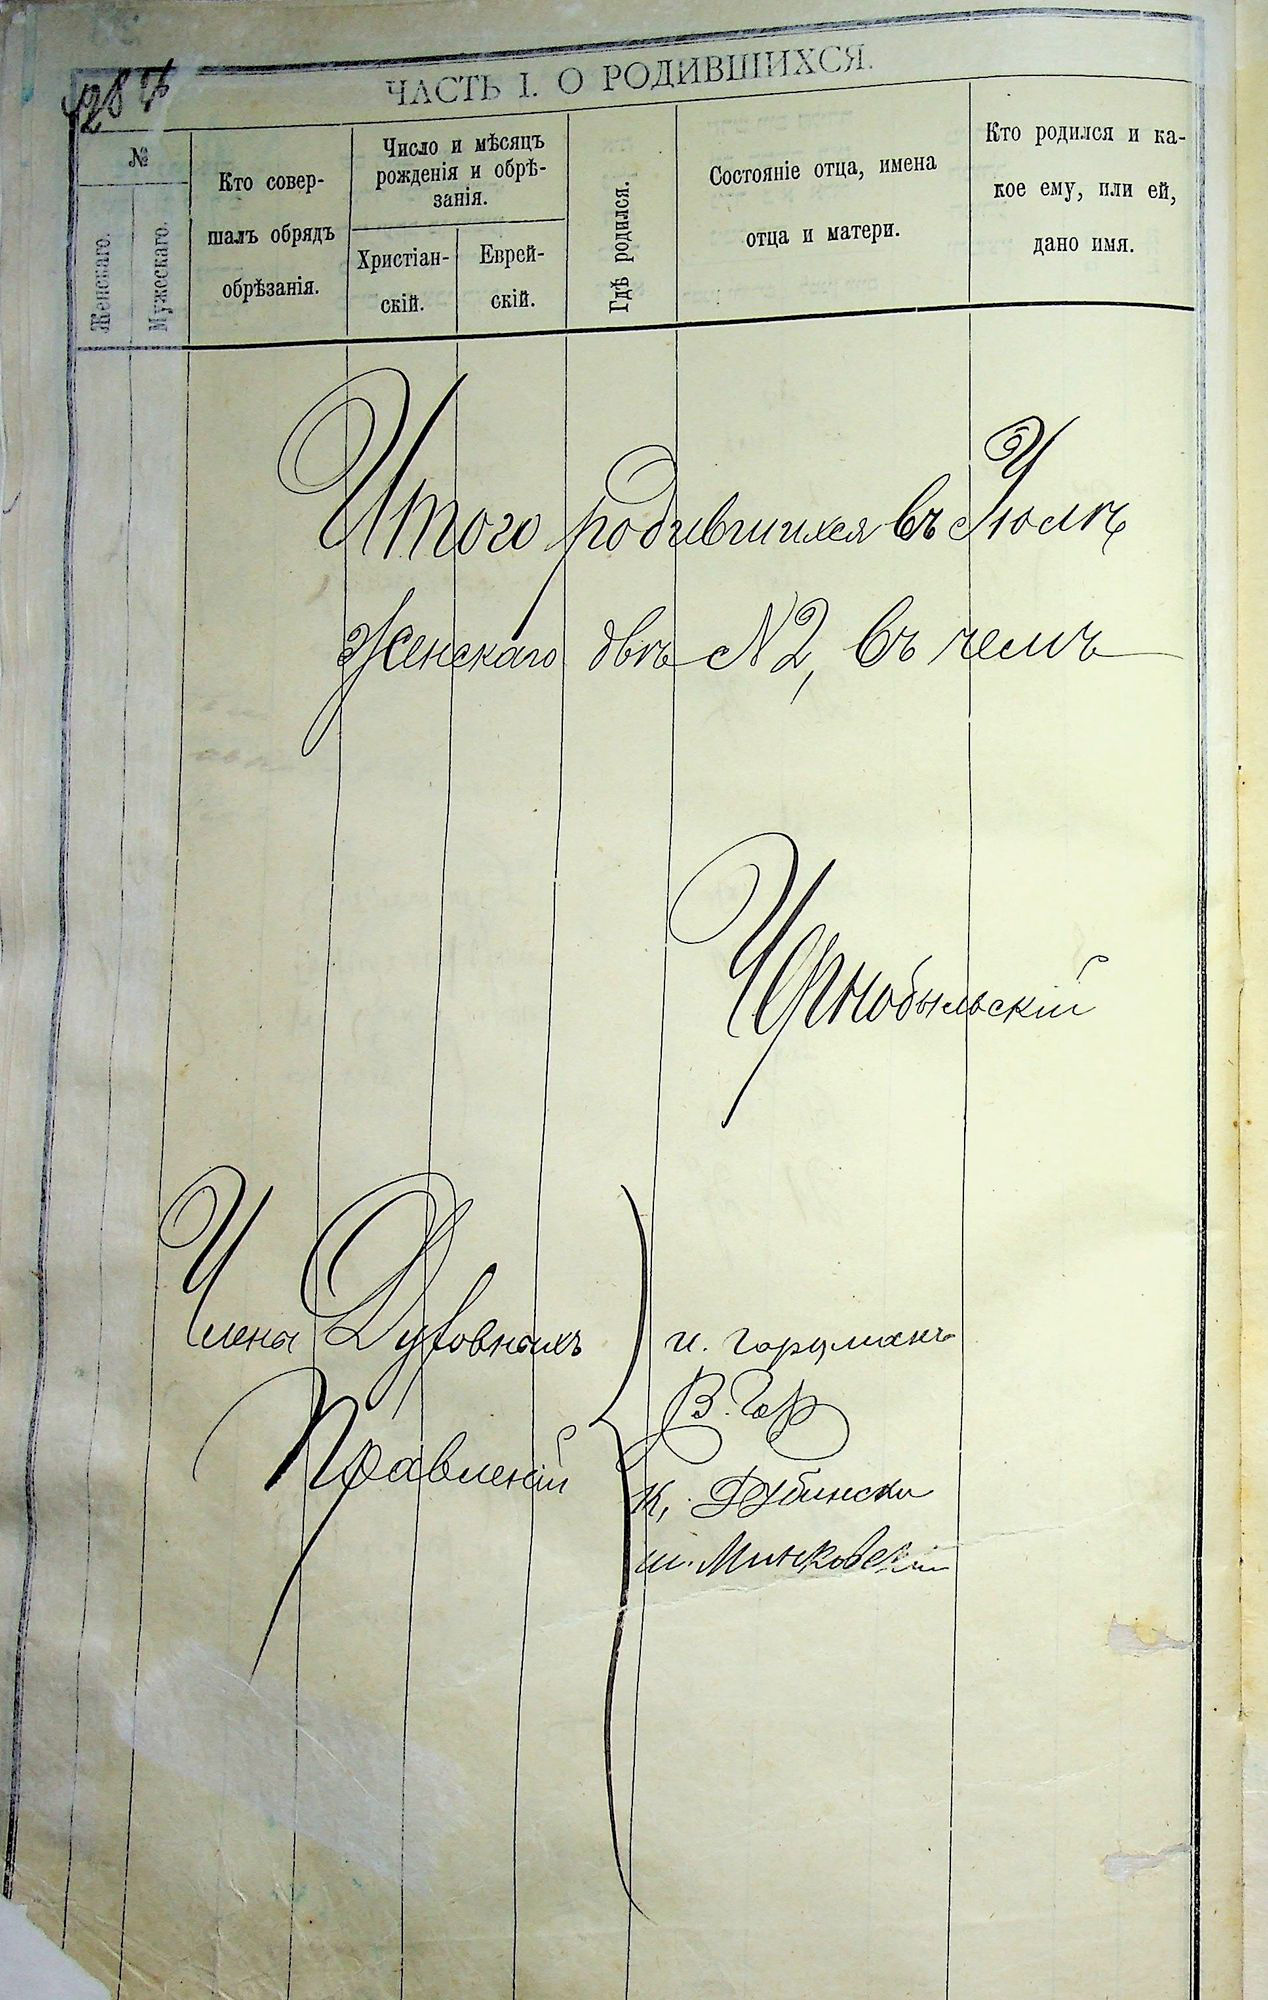 ЧАСТЬ I. О РОДИВШИХСЯ.
№
Женскаго.
Мужескаго.
Кто совер-
шалъ обрядъ
обрѣзанія.
Число и мѣсяцъ
рожденія и обрѣ-
занія.
Христіан-
скій.
Еврей-
скій.
Гдѣ родился.
Состояніе отца, имена
отца и матери.
Кто родился и ка-
кое ему, или ей,
дано имя.
Итого родившихся въ Іюлѣ
Женскаго двѣ №2, въ чемъ
Чернобыльскій
Члены Духовныхъ
Правленій
В. Гор
К. Дубински
ш. Минковскій